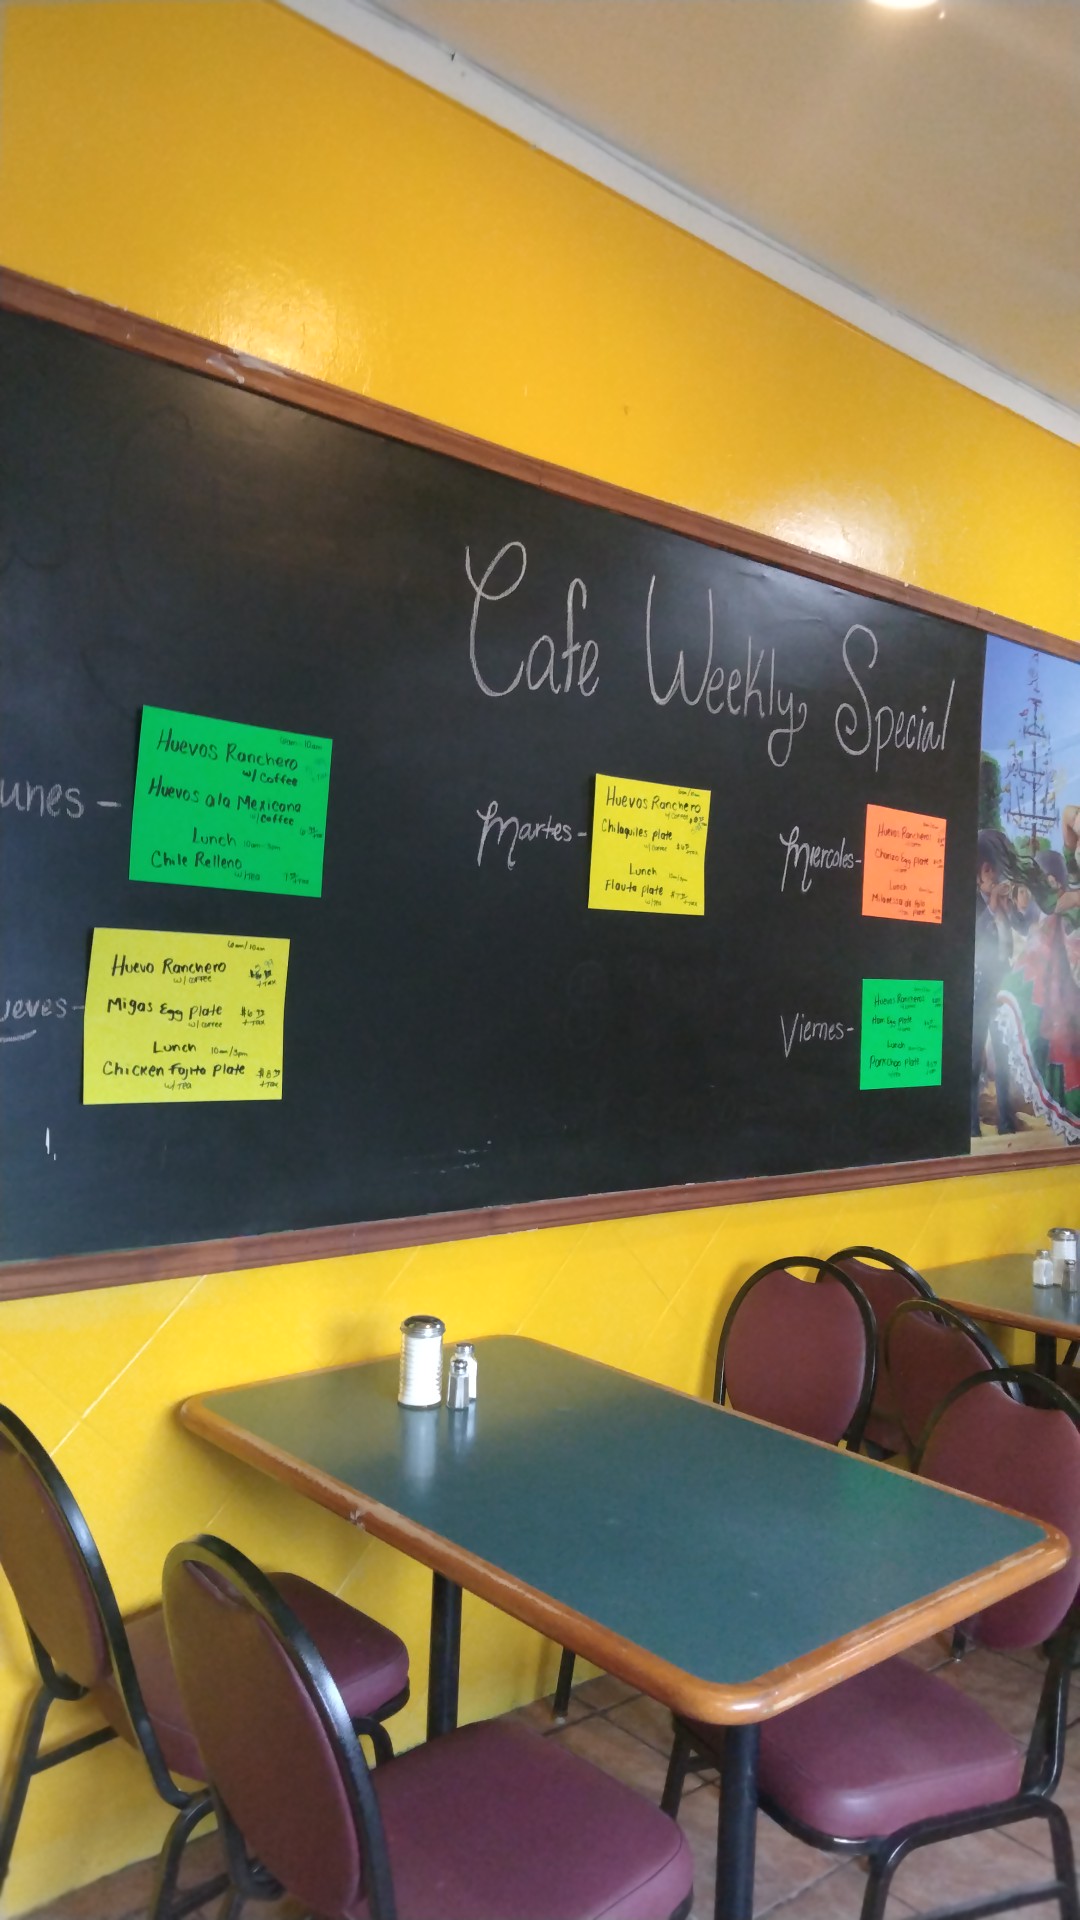 Cafe Weekly Special
unes -
6am-10am
Huevos Ranchero
w/ Coffee
Huevos ala Mexicana
w/Coffee
Lunch 10am-3pm
Chile Relleno
w/Tea
Martes -
Huevos Ranchero
w/ coffee
Chilaquiles plate
w/coffee
Lunch
Flauta plate
w/tea
Miercoles-
Huevos Rancheros
Chorizo Egg plate
Lunch
plate
ueves-
6am/10am
Huevo Ranchero
w/ coffee
+ Tax
Migas Egg Plate
w/ coffee + Tax
Lunch 10am/3pm
Chicken Fajita Plate
w/ Tea + Tax
Viernes-
Huevos Rancheros
Ham Egg plate
Lunch
Porkchop Plate